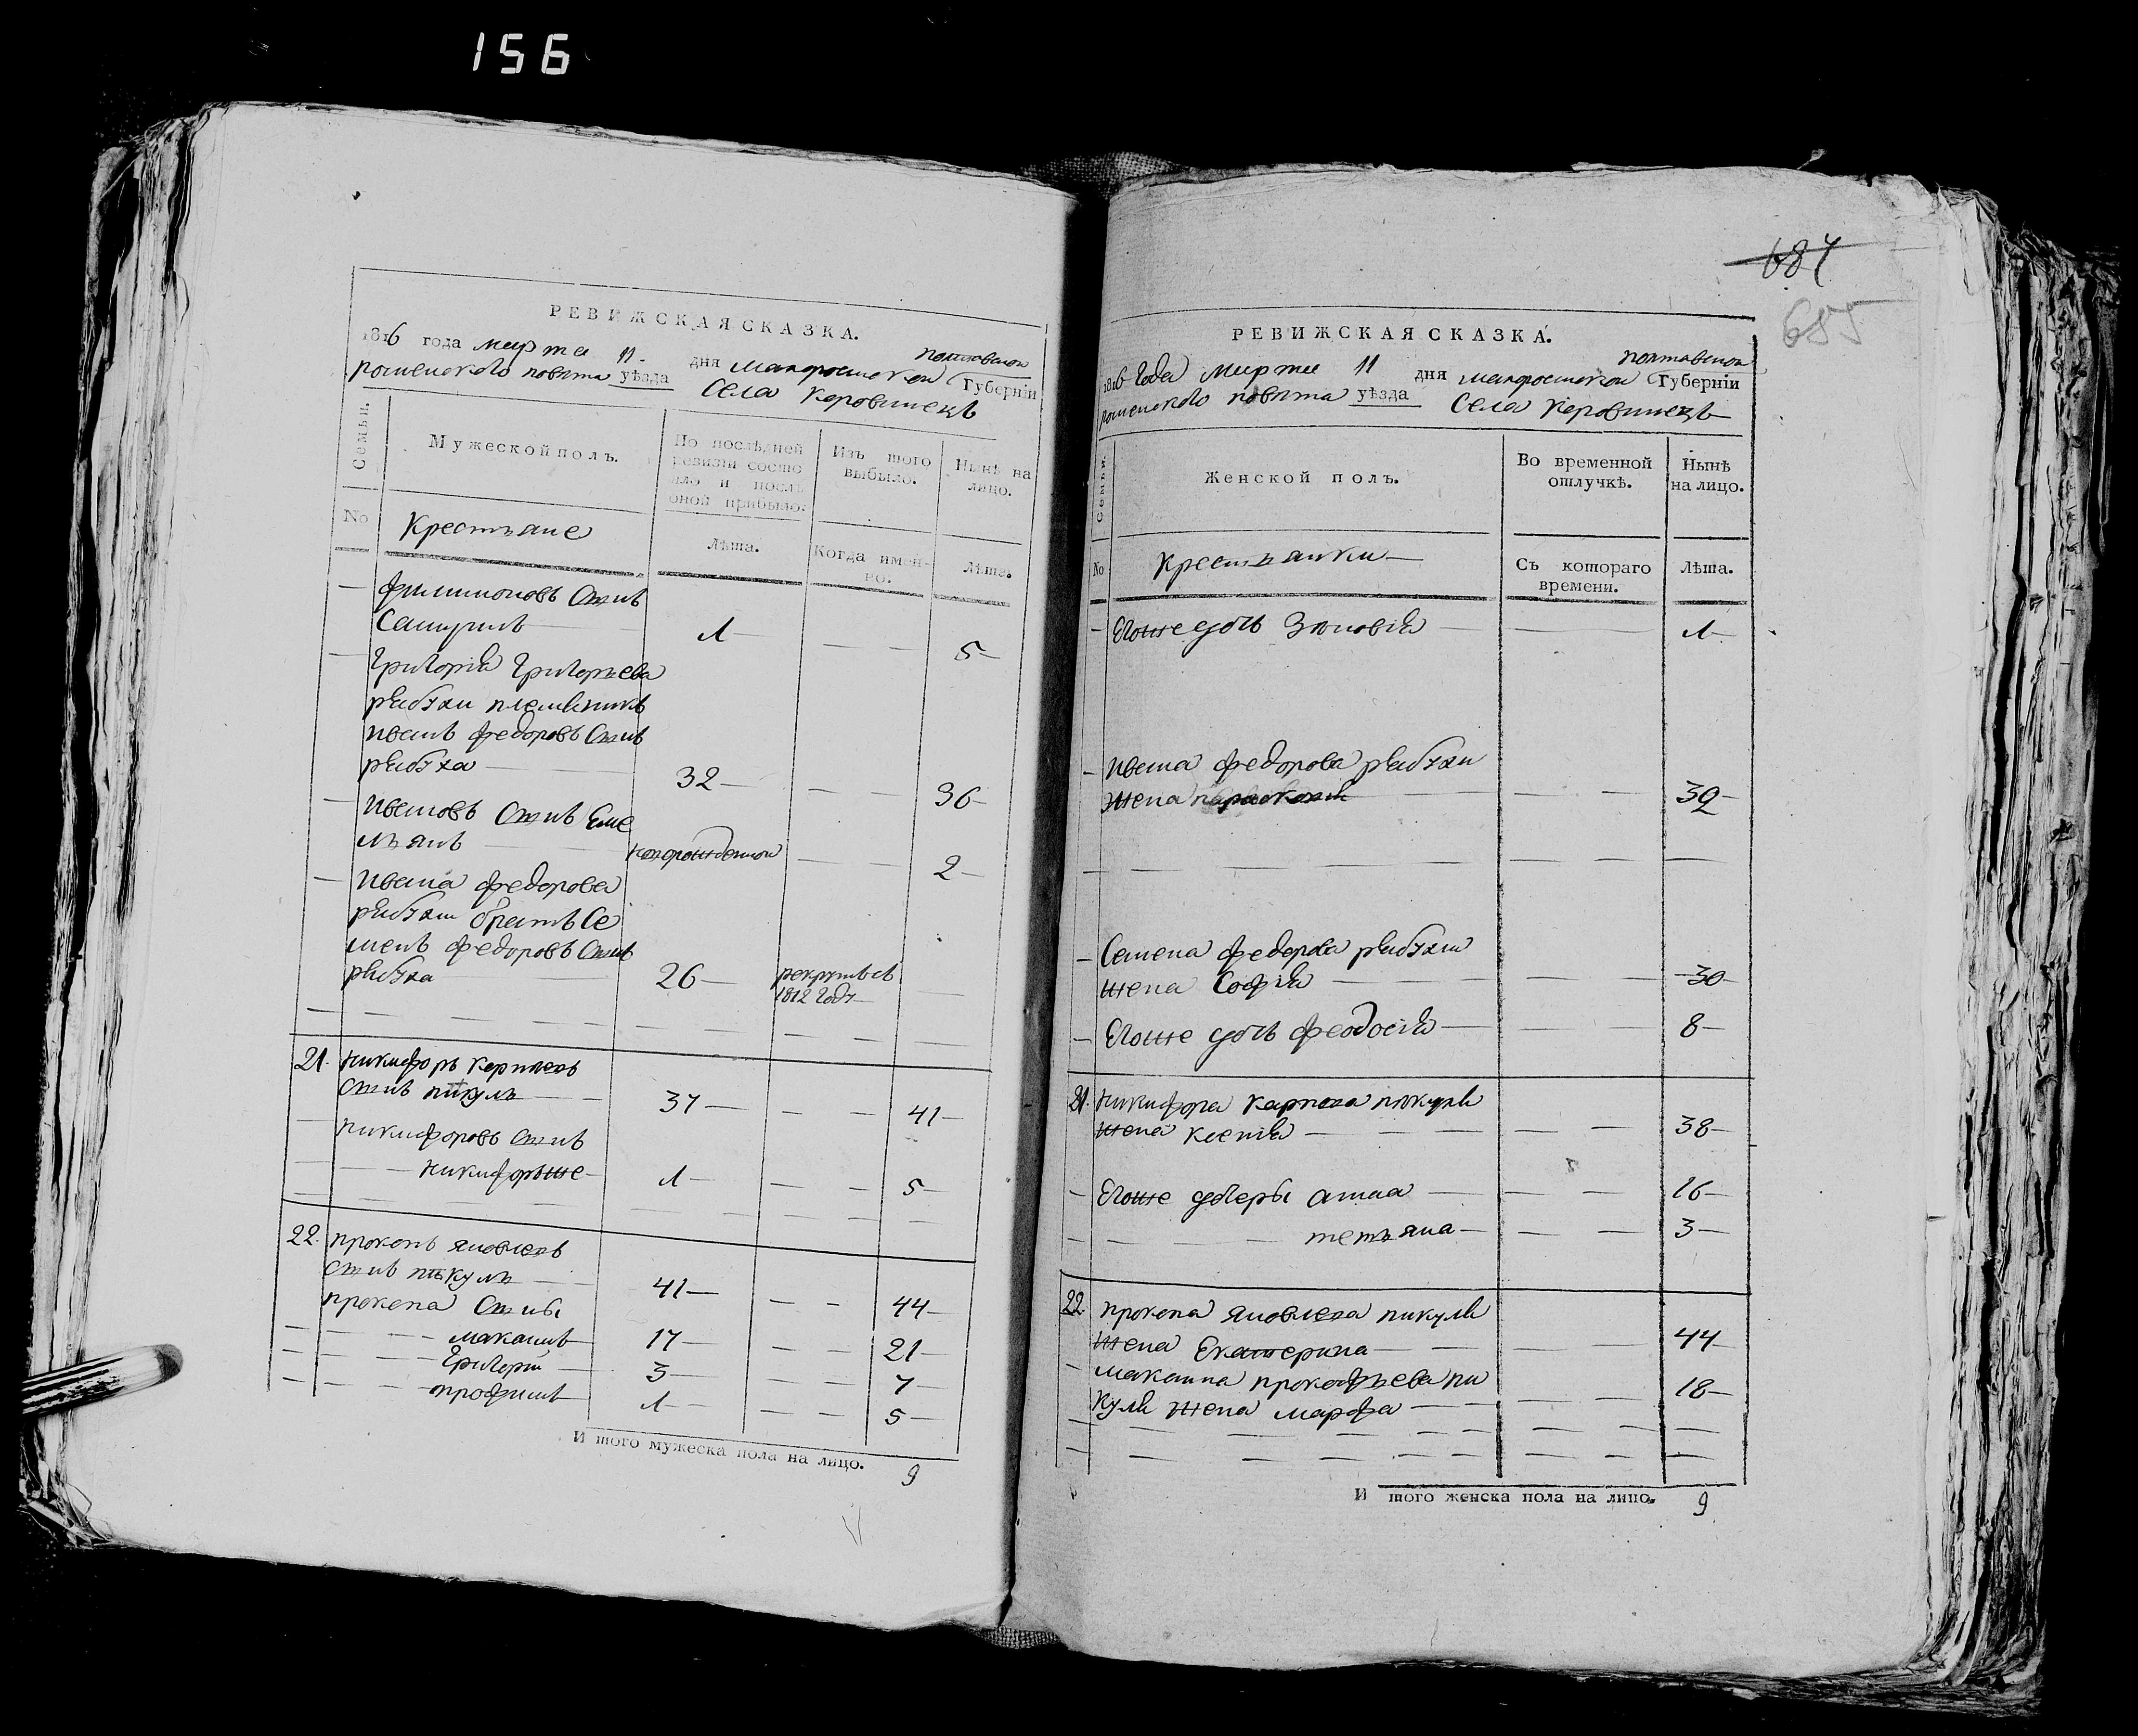 156
РЕВИЖСКАЯ СКАЗКА.
1816 года марта 11 дня малоросийской полтавской Губерніи
роменского повѣта уѣзда Села Коровинецъ
Семьи.
Мужеской полъ.
По послѣдней
ревизіи состо
яло и послѣ
оной прибыло.
Изъ того
выбыло.
Нынѣ на
лицо.
No
Крестьяне
Лѣта.
Когда имен-
но.
Лѣта.
— филимоновъ Сынъ
Самуилъ — 1 — — — 5 —
— Григорія Григорьева
рябухи племяникъ
иванъ федоровъ Сынъ
рябуха — 32 — — — 36 —
— ивановъ Сынъ Еме
льянъ — новорожденной — — 2 —
— ивана федорова
рябухи братъ Се
менъ федоровъ Сынъ
рябуха 26 — рекрутъ съ —
1812 году —
21. никифоръ карповъ
Сынъ пикуль — 37 — — — 41 —
— никифоровъ Сынъ
никифоръже — 1 — — — 5 —
22. прокопъ яковлевъ
Сынъ пикуль — 41 — — — 44 —
прокопа Сыны
— — — максимъ 17 — — — 21 —
— — — Григорій — 3 — — — 7 —
— — — трофимъ 1 — — — 5 —
И того мужеска пола на лицо. 9
684
685
РЕВИЖСКАЯ СКАЗКА.
1816 Года Марта 11 дня малоросийской полтавской Губерніи
роменского повѣта уѣзда Села Коровинецъ
Семьи.
Женской полъ.
Во временной
отлучкѣ.
Нынѣ
на лицо.
No
Крестьянки —
Съ котораго
времени.
Лѣта.
— Егоже дочь Зѣновія — — 1 —
— ивана федорова рябухи
жена параскевія — — — 32 —
— Семена федорова рябухи
жена Софія — — — 30 —
— Егоже дочь феодосія — — 8 —
21. никифора карпова пикуля
жена ксенія — — — 38 —
— Егоже дочери анна — — — 16 —
— — тетьяна — — — 3 —
22. прокопа яковлева пикуля
жена Екатерина — — 44 —
— максима прокофьева пи
куля жена марфа — — 18 —
И того женска пола на лицо. 9